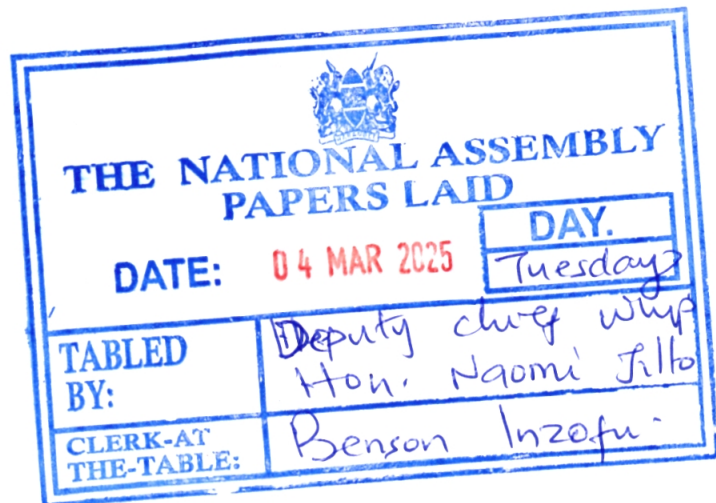 THE NATIONAL ASSEMBLY
PAPERS LAID
DATE: 04 MAR 2025
DAY.
Tuesday
TABLED BY:
Deputy chief whip
Hon. Naomi Jillo
CLERK-AT THE-TABLE:
Benson Inzofu.